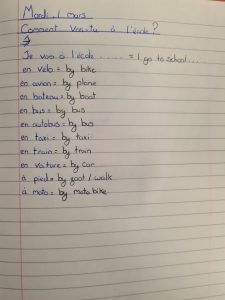 Mardi, 1 mars
Comment vas-tu à l'école?
Je vais à l'école ...... = I go to school...
en vélo = by bike
en avion = by plane
en bateau = by boat
en bus = by bus
en autobus = by bus
en taxi = by taxi
en train = by train
en voiture = by car
à pied = by foot / walk
à moto = by motobike